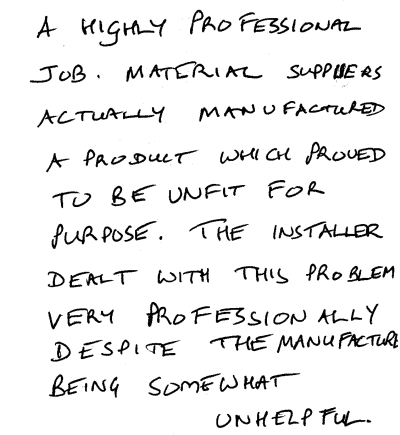 A HIGHLY PROFESSIONAL
JOB. MATERIAL SUPPLIERS
ACTUALLY MANUFACTURED
A PRODUCT WHICH PROVED
TO BE UNFIT FOR
PURPOSE. THE INSTALLER
DEALT WITH THIS PROBLEM
VERY PROFESSIONALLY
DESPITE THE MANUFACTURE
BEING SOMEWHAT
UNHELPFUL.